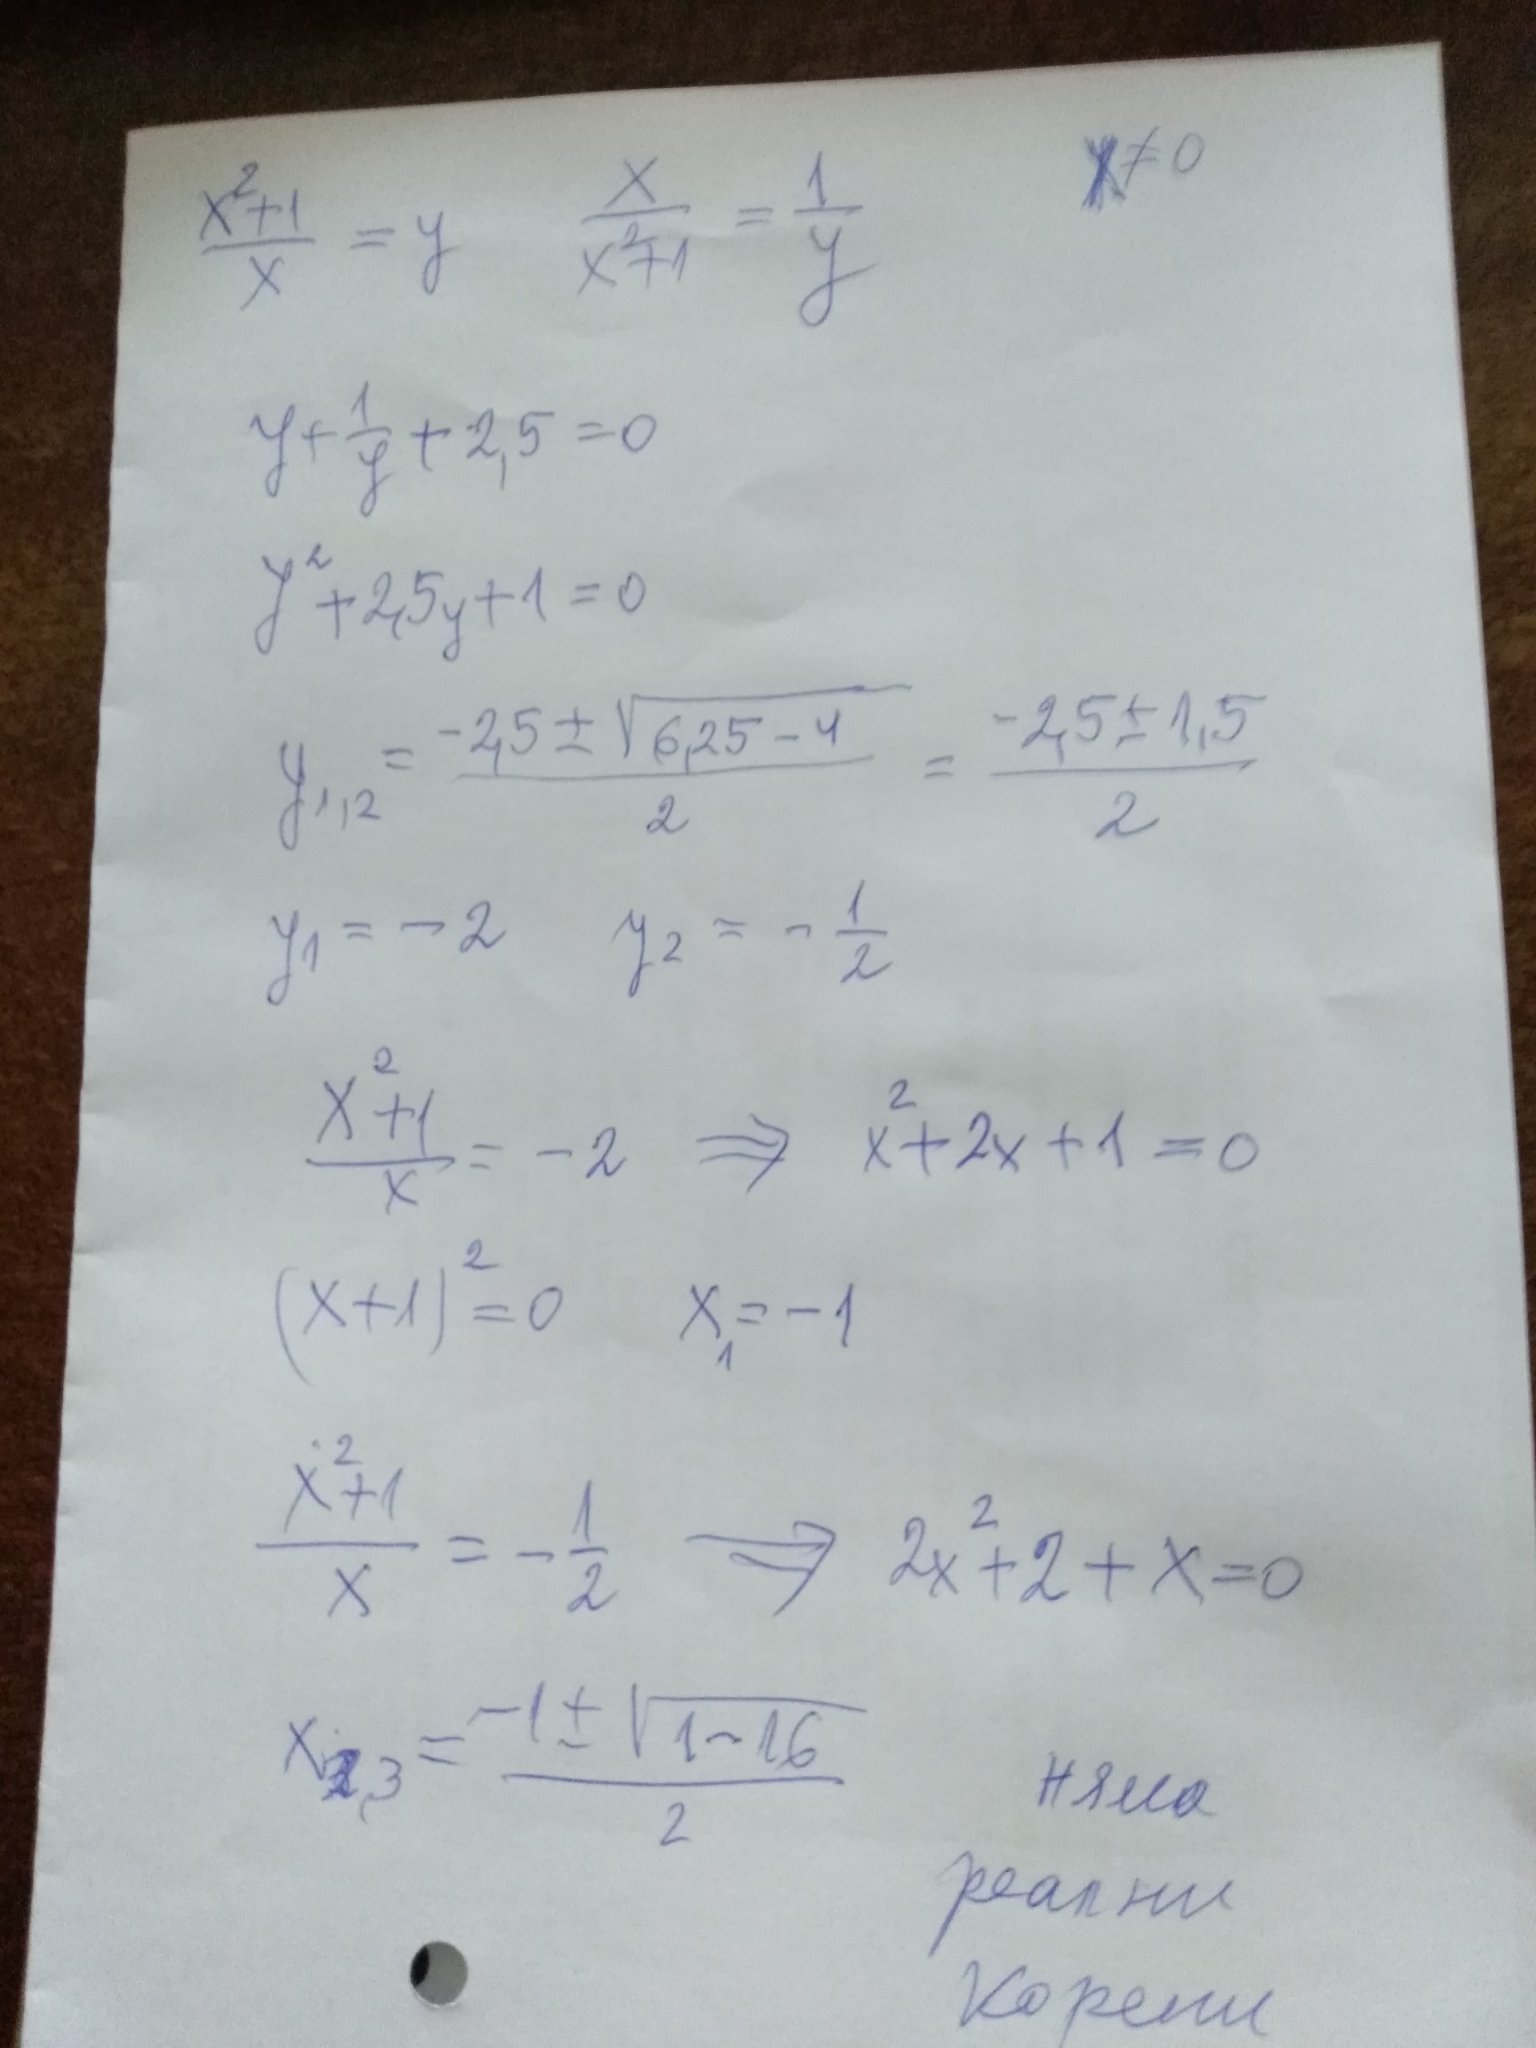 x²+1/x = y    x/x²+1 = 1/y    x≠0
y+1/y+2,5=0
y²+2,5y+1=0
y₁,₂ = -2,5±√6,25-4/2 = -2,5±1,5/2
y₁=-2    y₂=-1/2
x²+1/x=-2 ⇒ x²+2x+1=0
(x+1)²=0    x₁=-1
x²+1/x=-1/2 ⇒ 2x²+2+x=0
x₂,₃=-1±√1-16/2    няма
реални
корени